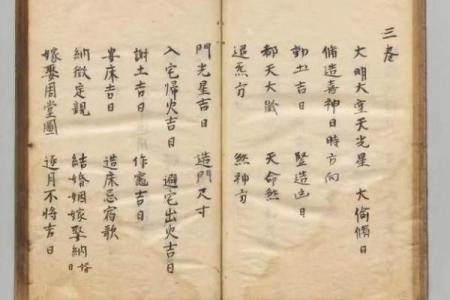 三卷
大明大空天光星 大偷脩日
脩造喜神日時方向
動土吉日 豎造凶日
都天大殺 天命煞
退炁方 煞神方
門光星吉日 造門尺寸
入宅歸火吉日 避宅出火吉日
謝土吉日 作竈吉日
安床吉日 造床忌宿歌
納徵定親 結婚姻嫁娶納婿日
嫁娶周堂圖 逐月不將吉日